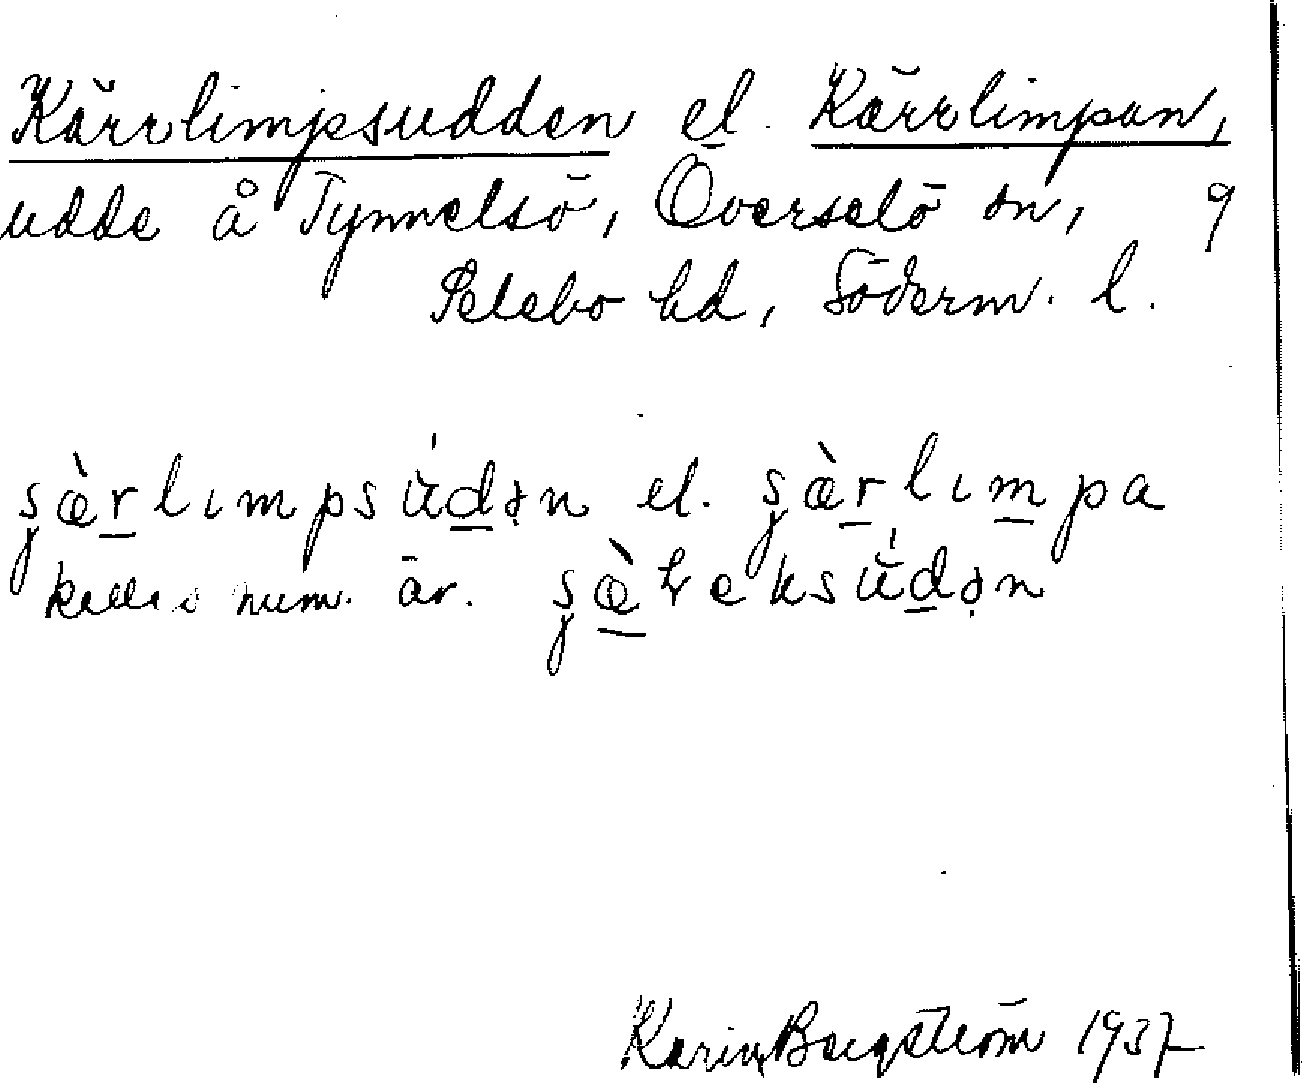 Kärrlimpsudden el. Kärrlimpan,
udde å Tynnelsö, Överselö sn, 9
Selebo hd, Söderm. l.
ʂæ̀rlımpsúdən el. ʂæ̀rlımpa
kallas num. äv.
Karin Bergström 1937